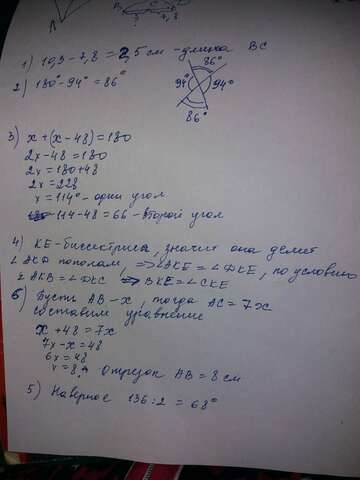 А
В
?
7,8
1) 10,3-7,8 = 2,5 см - длина ВС
2) 180°-94° = 86°
86°
94°
94°
86°
3) x+(x-48)=180
2x-48=180
2x=180+48
2x=228
x=114° - один угол
114-48=66 - второй угол
4) КЕ-биссектриса, значит она делит
∠АКD пополам, => ∠АКЕ = ∠DКЕ, по условию
∠АКВ = ∠DКС => ВКЕ = ∠СКЕ
6) Пусть АВ - х, тогда АС = 7х
составим уравнение
x+48 = 7x
7x-x = 48
6x = 48
x = 8. Отрезок АВ = 8 см
5) Наверное 136:2 = 68°